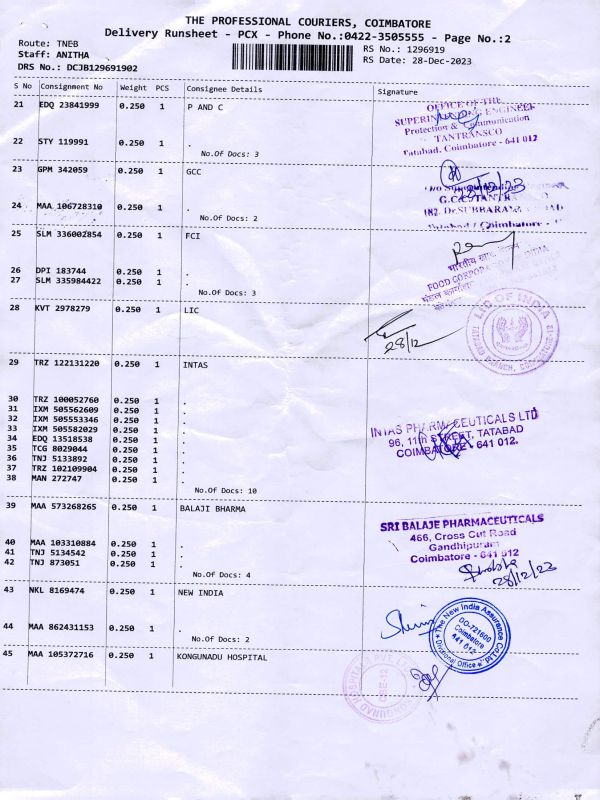 THE PROFESSIONAL COURIERS, COIMBATORE
Delivery Runsheet - PCX - Phone No.:0422-3505555 - Page No.:2
Route: TNEB
RS No.: 1296919
Staff: ANITHA
RS Date: 28-Dec-2023
DRS No.: DCJB129691902
S No Consignment No Weight PCS Consignee Details Signature
21 EDQ 23841999 0.250 1 P AND C
OFFICE OF THE
SUPERINTENDING ENGINEER
Protection & Communication
TANTRANSCO
Tatabad, Coimbatore - 641 012
22 STY 119991 0.250 1 .
No.Of Docs: 3
23 GPM 342059 0.250 1 GCC
28/12/23
24 MAA 106728310 0.250 1 .
No.Of Docs: 2
25 SLM 336002854 0.250 1 FCI
26 DPI 183744 0.250 1 .
27 SLM 335984422 0.250 1 .
No.Of Docs: 3
28 KVT 2978279 0.250 1 LIC
28/12
LIC OF INDIA
29 TRZ 122131220 0.250 1 INTAS
30 TRZ 100052760 0.250 1 .
31 IXM 505562609 0.250 1 .
32 IXM 505553346 0.250 1 .
33 IXM 505582029 0.250 1 .
34 EDQ 13518538 0.250 1 .
35 TCG 8029044 0.250 1 .
36 TNJ 5133892 0.250 1 .
37 TRZ 102109904 0.250 1 .
38 MAN 272747 0.250 1 .
No.Of Docs: 10
INTAS PHARMACEUTICALS LTD
96, 11th STREET, TATABAD
COIMBATORE - 641 012.
39 MAA 573268265 0.250 1 BALAJI BHARMA
SRI BALAJE PHARMACEUTICALS
466, Cross Cut Road
Gandhipuram
Coimbatore - 641 012
40 MAA 103310884 0.250 1 .
41 TNJ 5134542 0.250 1 .
42 TNJ 873051 0.250 1 .
No.Of Docs: 4
28/12/23
43 NKL 8169474 0.250 1 NEW INDIA
The New India Assurance Co. Ltd.
DO-721600
Coimbatore
641 012
Divisional Office
44 MAA 862431153 0.250 1 .
No.Of Docs: 2
45 MAA 105372716 0.250 1 KONGUNADU HOSPITAL